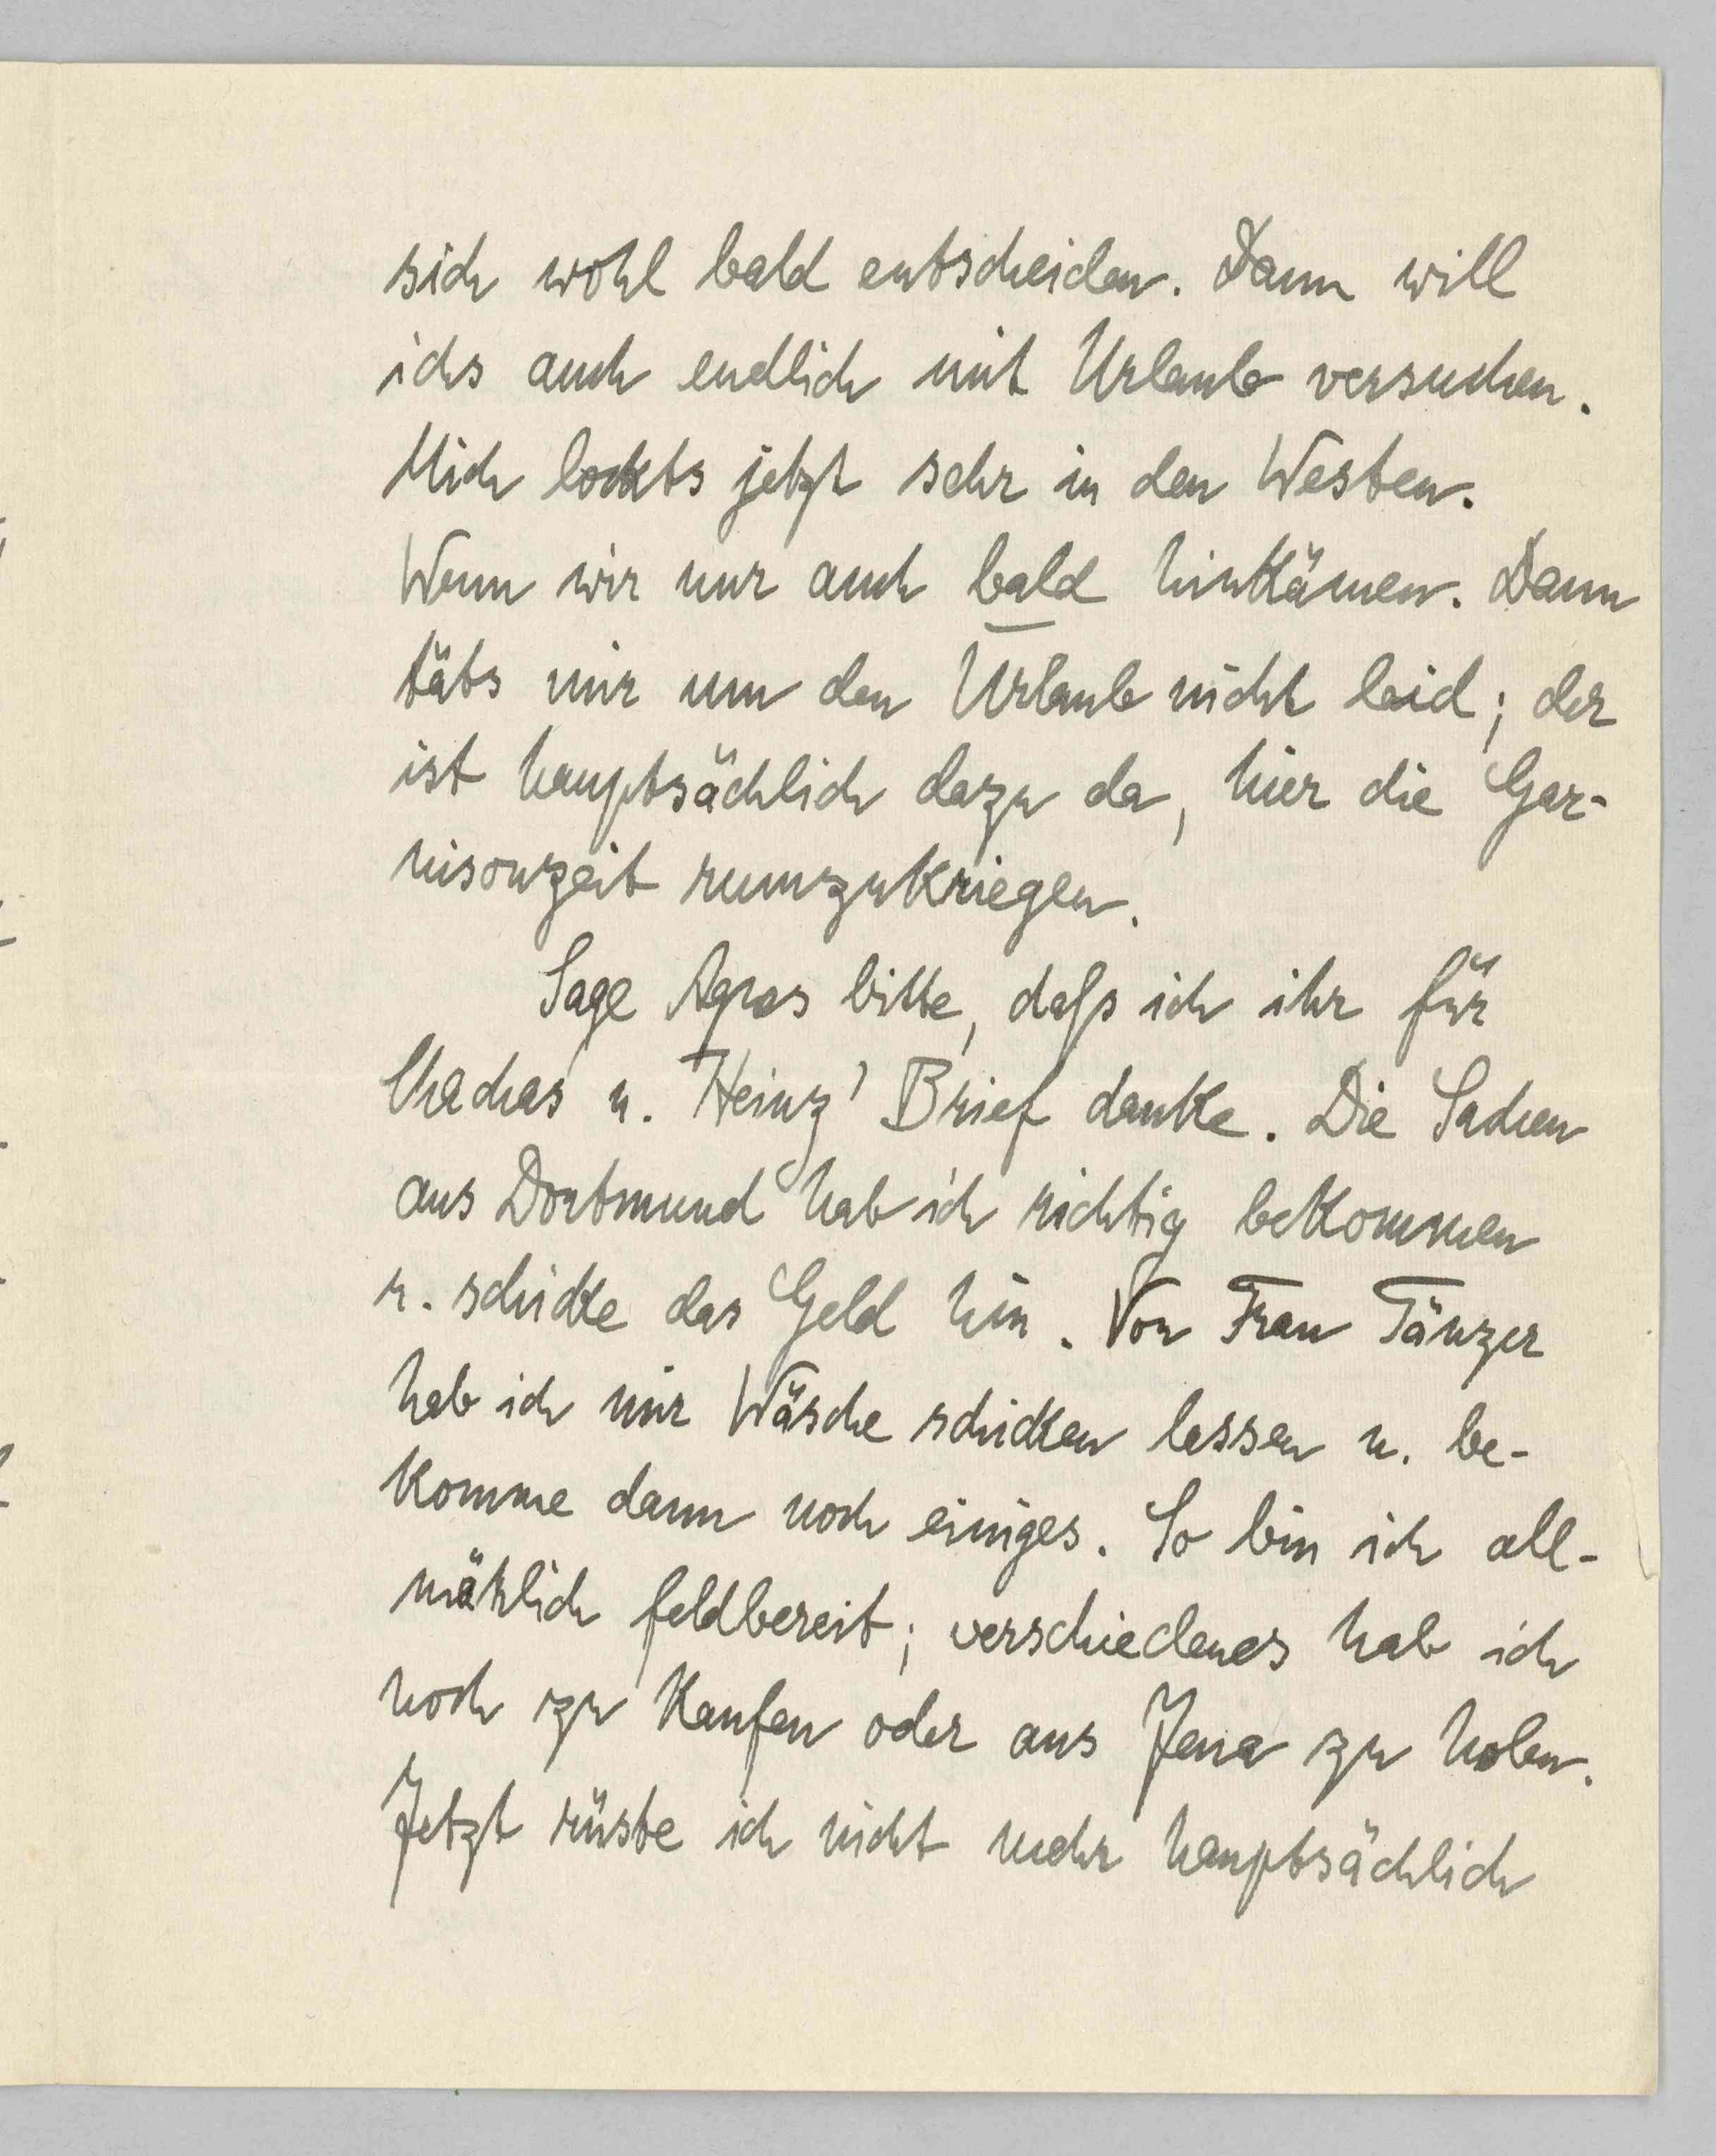 sich wohl bald entscheiden. Dann will
ichs auch endlich mit Urlaub versuchen.
Mich lockts jetzt sehr in den Westen.
Wenn wir nur auch bald hinkämen. Dann
täts mir um den Urlaub nicht leid; der
ist hauptsächlich dazu da, hier die Gar-
nisonzeit rumzukriegen.
Sage Agnes bitte, daſs ich ihr für
Chachas u. Heinz' Brief danke. Die Sachen
aus Dortmund hab ich richtig bekommen
u. schicke das Geld hin. Von Frau Tänzer
hab ich mir Wäsche schicken lassen u. be-
komme dann noch einiges. So bin ich all-
mählich feldbereit; verschiedenes hab ich
noch zu kaufen oder aus Jena zu holen.
Jetzt rüste ich nicht mehr hauptsächlich